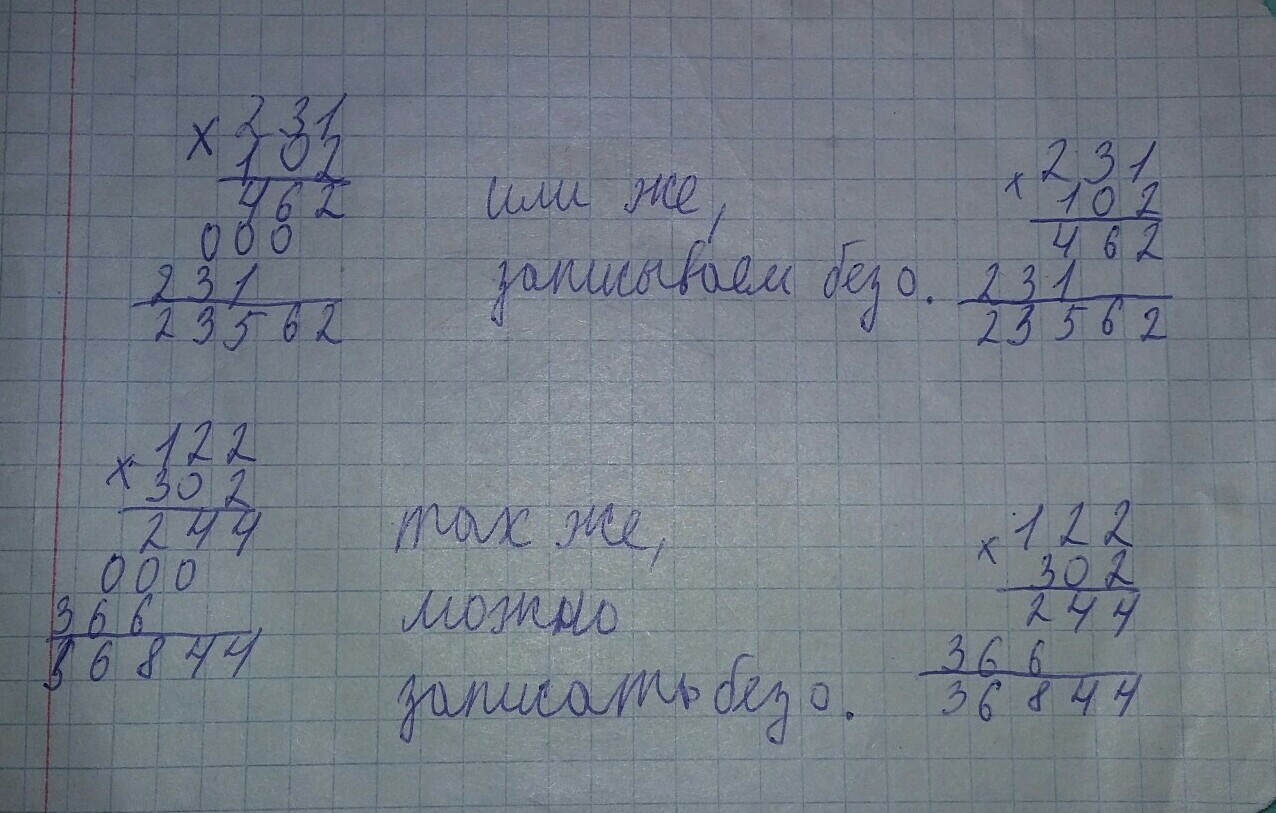 × 231
102
462
000
231
23562
или же,
записываем без 0.
× 231
102
462
231
23562
× 122
302
244
000
366
36844
так же,
можно
записать без 0.
× 122
302
244
366
36844